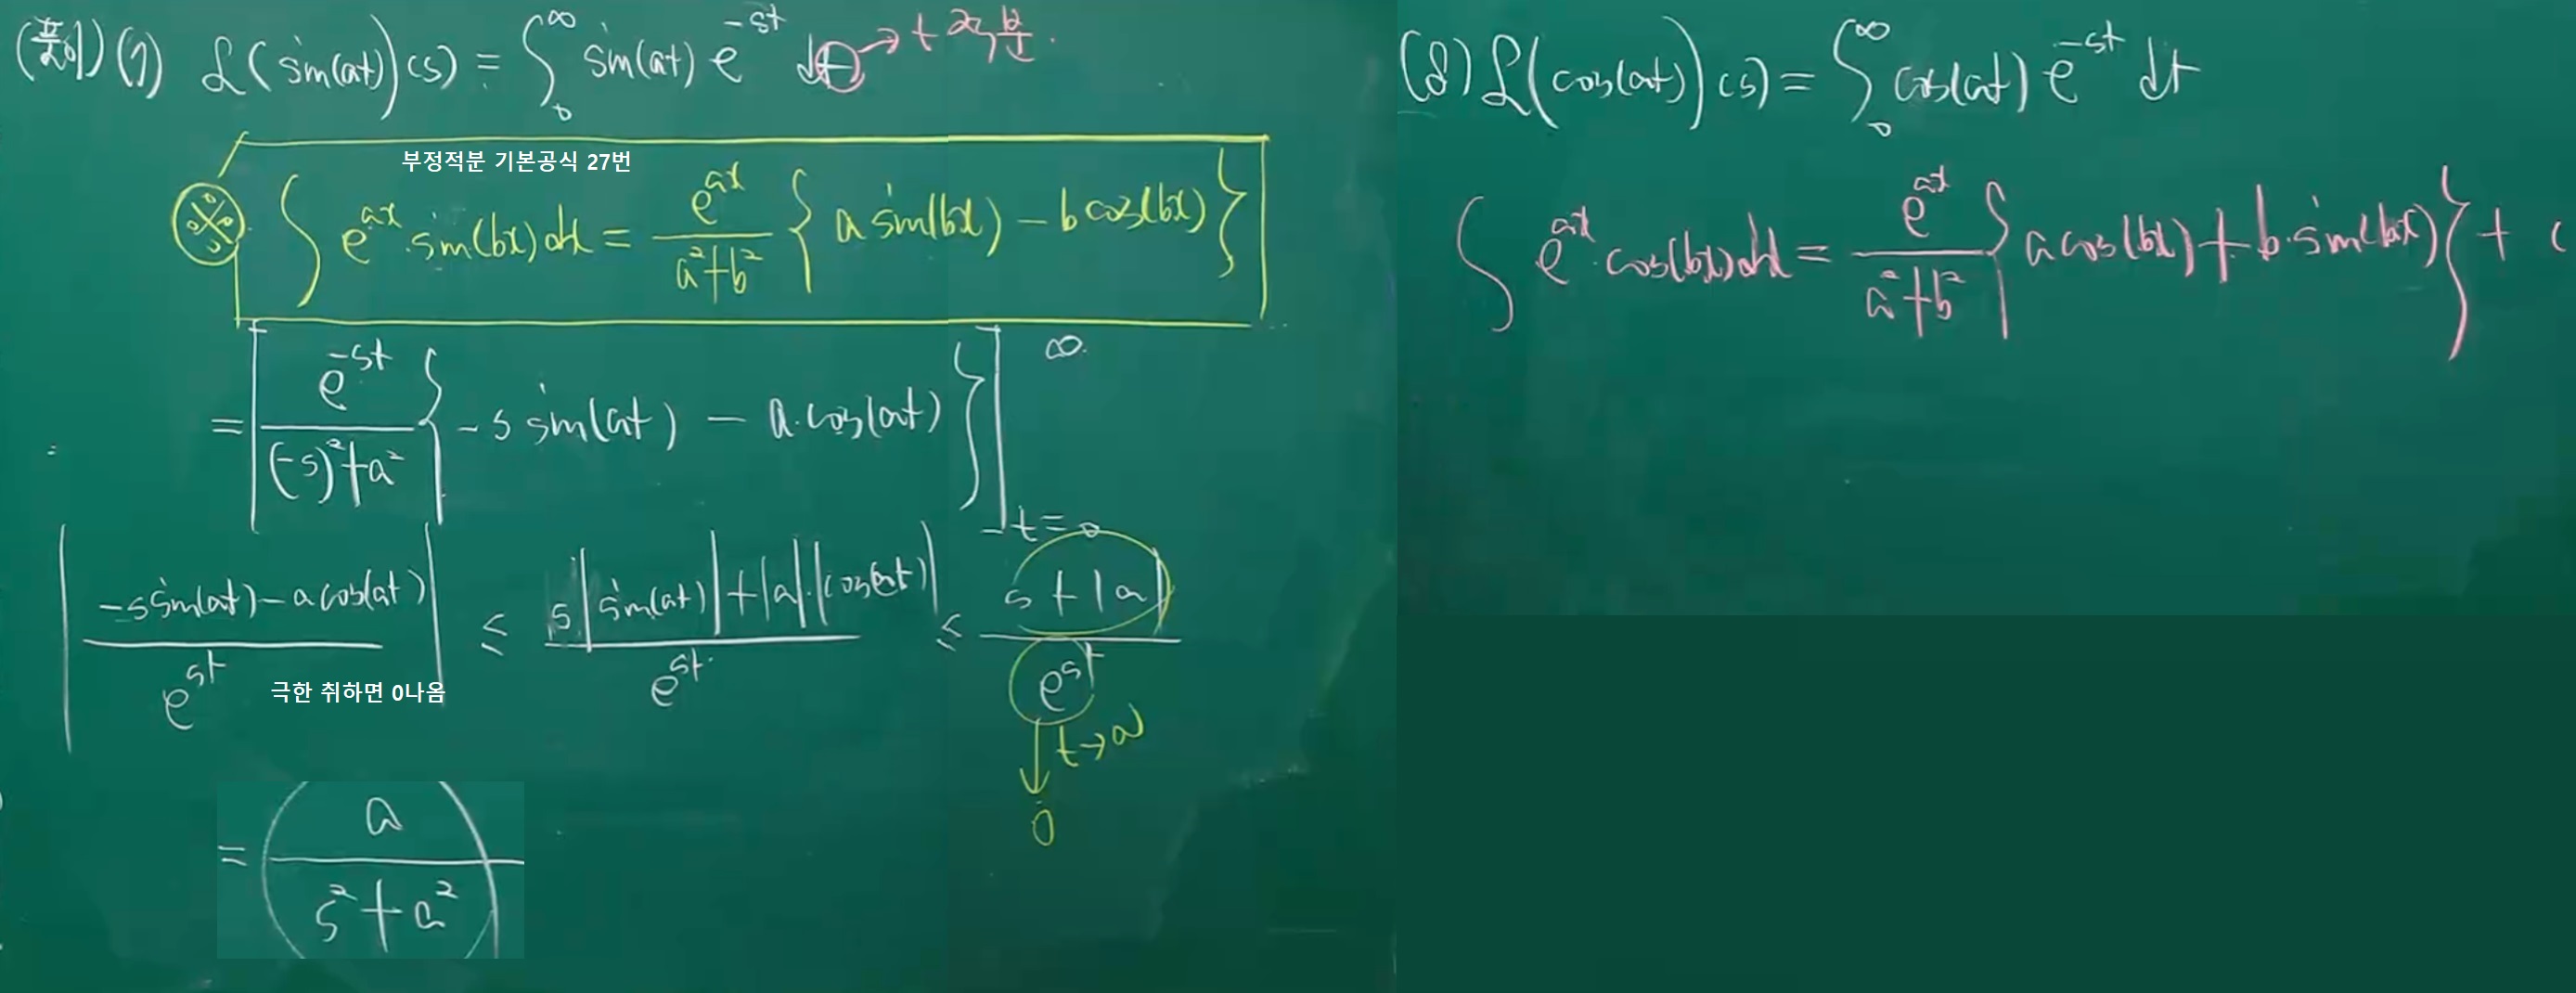 (풀이) (7) ℒ(sin(at))(s) = ∫₀^∞ sin(at) e^{-st} dt → t 적분.
부정적분 기본공식 27번
∫ e^{ax}·sin(bx)dx = e^{ax}/(a²+b²) { a sin(bx) - b cos(bx) }
= [ e^{-st}/((-s)²+a²) { -s sin(at) - a·cos(at) } ]_{t=0}^{∞}
| (-s sin(at) - a cos(at))/e^{st} | ≤ (s|sin(at)| + |a|·|cos(at)|)/e^{st} ≤ (s+|a|)/e^{st}
극한 취하면 0나옴
t→∞
0
= a/(s²+a²)
(8) ℒ(cos(at))(s) = ∫₀^∞ cos(at) e^{-st} dt
∫ e^{ax}·cos(bx)dx = e^{ax}/(a²+b²) { a cos(bx) + b·sin(bx) } + C